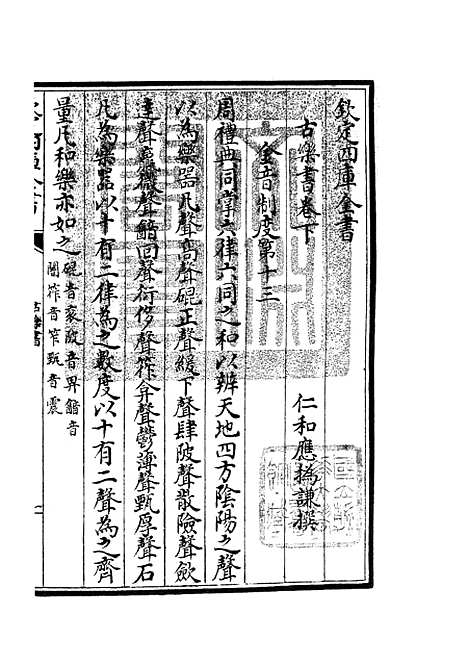 欽定四庫全書
古樂書卷下
仁和應撝謙撰
金音制度第十三
周禮典同掌六律六同之和以辨天地四方陰陽之聲
以為樂器凡聲高聲䃂正聲緩下聲肆陂聲散險聲斂
達聲贏微聲韽回聲衍侈聲筰弇聲鬱薄聲甄厚聲石
凡為樂器以十有二律為之數度以十有二聲為之齊
量凡和樂亦如之䃂音衮陂音畀韽音
闇筰音窄甄音震
古樂書